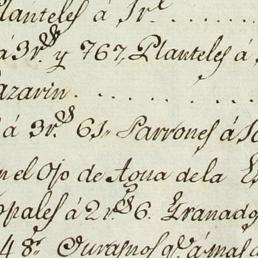 Planteles á 1 r.^l
á 3 r.^s y 767, Planteles á
Lazarin. . . . . . . . .
á 3 r.^s 61,, Parrones á
en el Ojo de Agua de la
opales á 2 r.^s 6. Granados
48 Duraznos q.^e á mas d